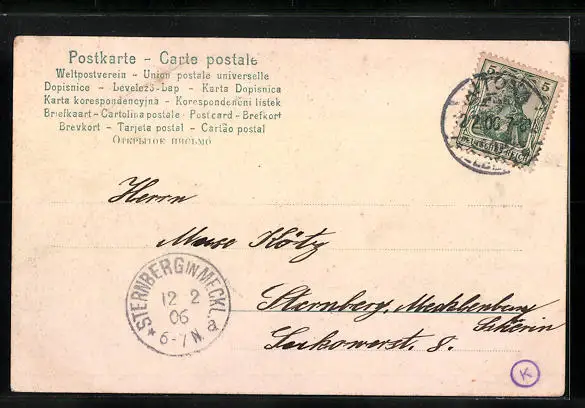 Postkarte - Carte postale
Weltpostverein - Union postale universelle
Dopisnice - Levelező-Lap - Karta Dopisnica
Karta korespondencyjna - Korespondenční listek
Briefkaart - Cartolina postale - Postcard - Brefkort
Brevkort - Tarjeta postal - Cartão postal
ОТКРЫТОЕ ПИСЬМО
5 5
Herrn
Kötz
STERNBERG IN MECKL. a
12 2
06
* 6-7 N.
Sternberg, Mecklenburg
Schwerin
Serkowerst. 8.
K